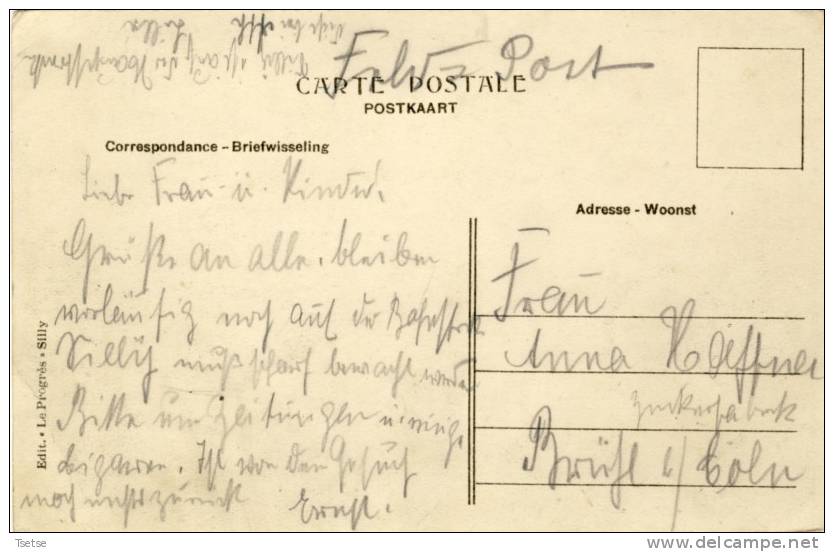 Feld-Post
CARTE POSTALE
POSTKAART
Correspondance - Briefwisseling
Liebe Frau u. Kinder,
Grüße an alle, bleiben
vorläufig noch auf der
Silly muß scharf bewacht werden
Bitte um Zeitungen u. einige
Zigarren. Ist von dem Gesuch
noch nichts zurück
Ernst.
Adresse - Woonst
Frau
Anna Häffner
Zuckerfabrik
Brühl b/ Cöln
Edit. • Le Progrès • Silly
Tsetse
www.delcampe.net